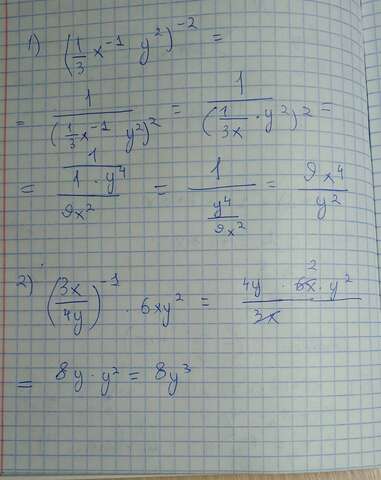 1) (1/3 x⁻¹ y²)⁻² =
= 1/(1/3 x⁻¹ y²)² = 1/(1/3x · y²)² =
= 1/((1 · y⁴)/(9x²)) = 1/(y⁴/9x²) = 9x⁴/y²
2) (3x/4y)⁻¹ · 6xy² = (4y · 6x² · y²)/3x
= 8y · y² = 8y³